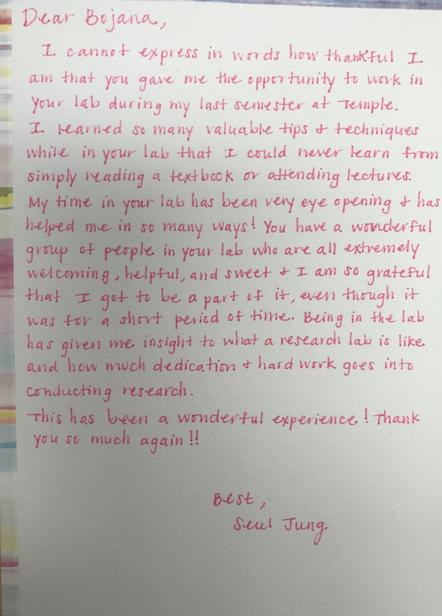 Dear Bojana,
I cannot express in words how thankful I
am that you gave me the opportunity to work in
your lab during my last semester at Temple.
I learned so many valuable tips & techniques
while in your lab that I could never learn from
simply reading a textbook or attending lectures.
My time in your lab has been very eye opening & has
helped me in so many ways! You have a wonderful
group of people in your lab who are all extremely
welcoming, helpful, and sweet & I am so grateful
that I got to be a part of it, even though it
was for a short period of time. Being in the lab
has given me insight to what a research lab is like
and how much dedication & hard work goes into
conducting research.
This has been a wonderful experience! Thank
you so much again!!
Best,
Seul Jung